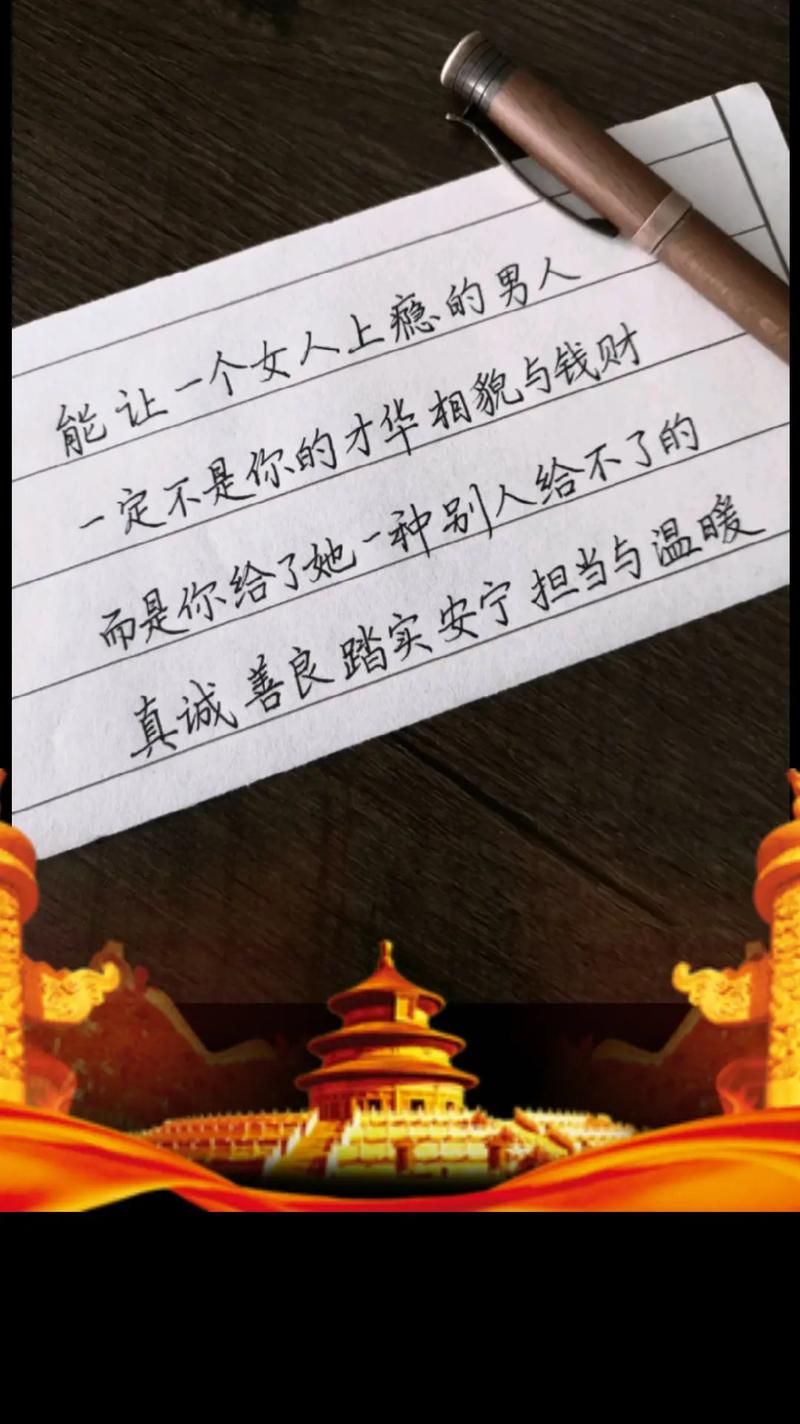 能让一个女人上瘾的男人
一定不是你的才华相貌与钱财
而是你给了她一种别人给不了的
真诚善良踏实安宁担当与温暖